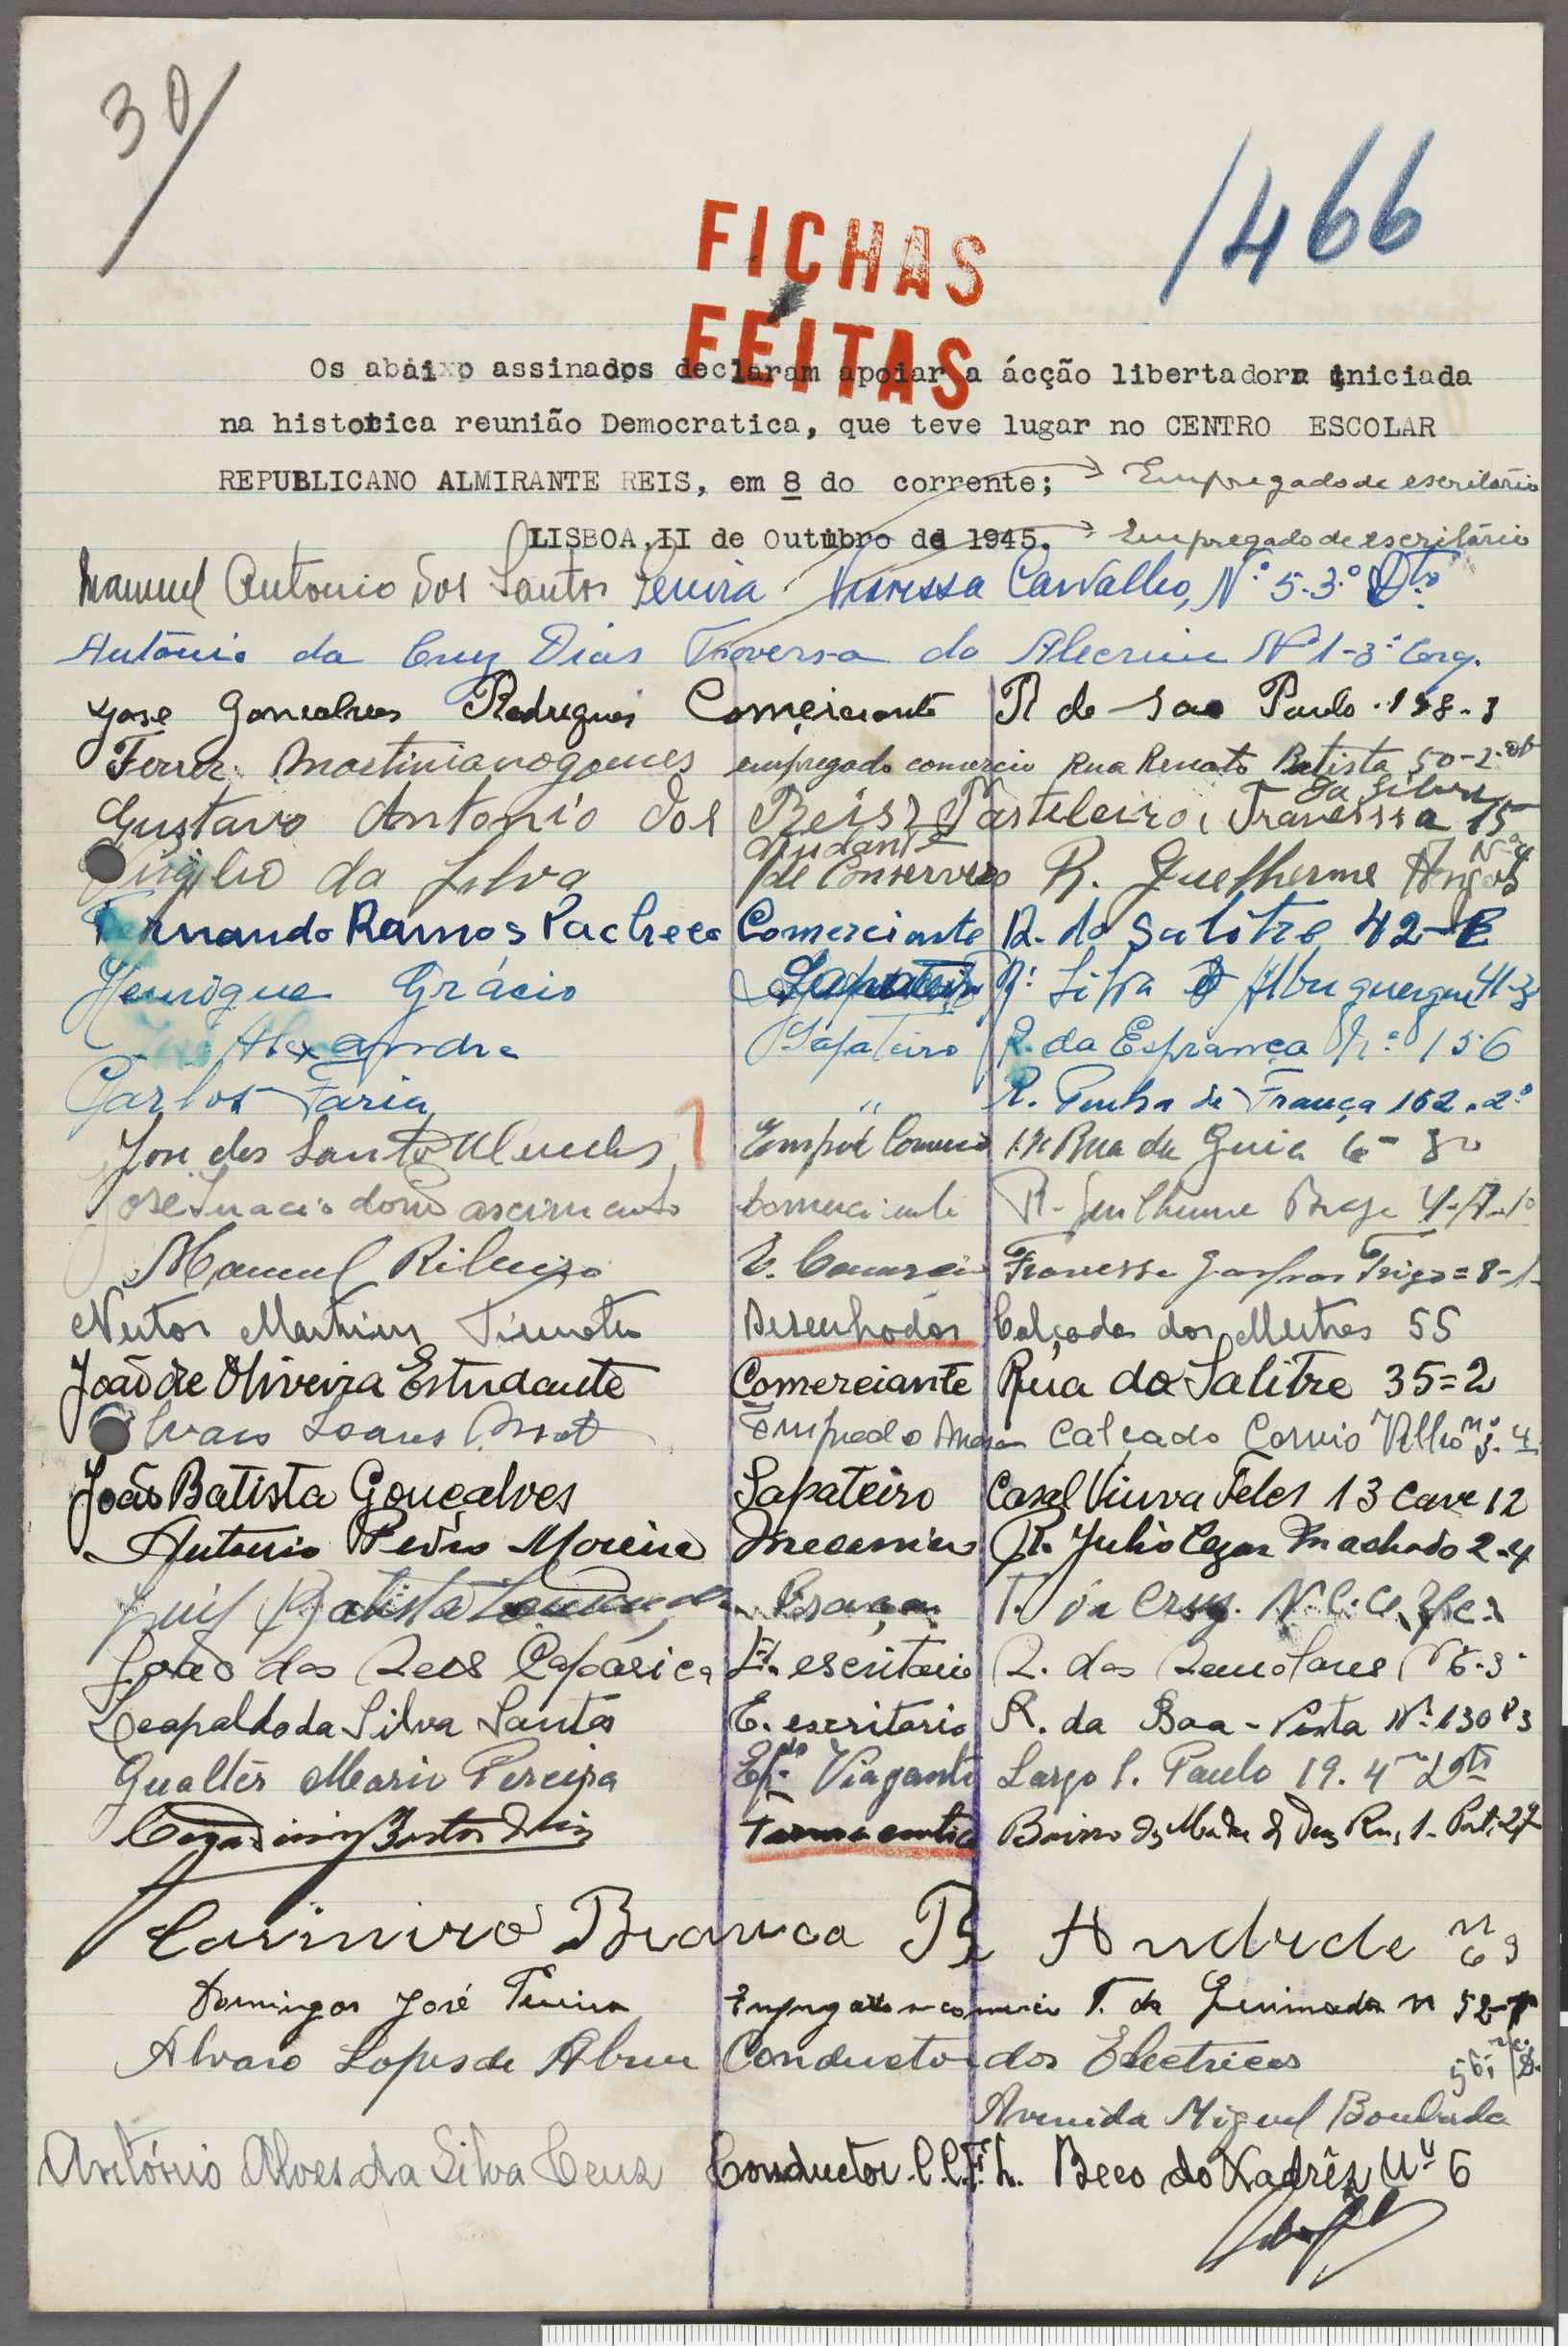 30/
1466
FICHAS
FEITAS
Os abaixo assinados declaram apoiar a ácção libertadora iniciada
na historica reunião Democratica, que teve lugar no CENTRO ESCOLAR
REPUBLICANO ALMIRANTE REIS, em 8 do corrente; Empregado de escritório
LISBOA, II de Outubro de 1945. Empregado de escritório
Manuel Antonio dos Santos Pereira Travessa Carvalho, Nº 5.3º Dtº
António da Cruz Dias Travessa do Alecrim Nº 1-3º Esq.
Jose Goncalves Rodrigues Comerciante R de Sao Paulo 198-3
Ferrer Martiniano gomes empregado comercio Rua Renato Batista 50-2º
da Silva
Gustavo Antonio dos Reis Pasteleiro, Travessa 15
ajudante
Virgilio da Silva de Conserveiro R. Guelherme
Fernando Ramos Pacheco Comerciante R. do Salitre 42-E
Henrique Grácio Sapateiro R. Silva Albuquerque 41-3
José Alexandre Sapateiro R. da Esprança Nº 156
Carlos Faria " R. Penha de França 162.2º
José dos Santos Mendes Empdo Comercio Rua da Guia 6-3º
José Inacio do Nascimento Comerciante R. Guilherme Braga 4-A-1º
Manuel Ribeiro E. Comercio Travessa Gaspar Trigo = 8-1
Nestor Martins Timoteo Desenhador Calçada dos Mestres 55
João de Oliveira Estudante Comerciante Rua do Salitre 35=2
Alvaro Soares Calçada Correio Velho nº 3.4
João Batista Gonçalves Sapateiro Casal Viuva Teles 13 cave 12
Antonio Pedro Moreira Mecanico R. Julio Cezar Machado 2-4
Luis Batista T. da Cruz
João dos Reis Caparica E. escritorio R. dos Remolares Nº 6-3º
Leopaldo da Silva Santos E. escritorio R. da Boa-Vista Nº 130 3
Gualter Mario Pereira Epdo Viajante Largo S. Paulo 19.4º Dto
Bastos Farmaceutico Bairro da Madre de Deus Rua 1
Casimiro Branca R. Andrade nº 69
Domingos José Pereira Empregado no comercio T. da Queimada n 52-1
Alvaro Lopes de Abreu Conductor dos Electricos 56,
Avenida Miguel Bombarda
António Alves da Silva Cruz Conductor C.C.F.L. Beco do Xadrêz Nº 6